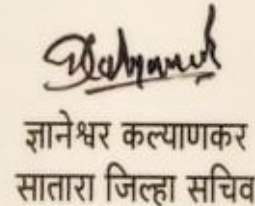 ज्ञानेश्वर कल्याणकर
सातारा जिल्हा सचिव